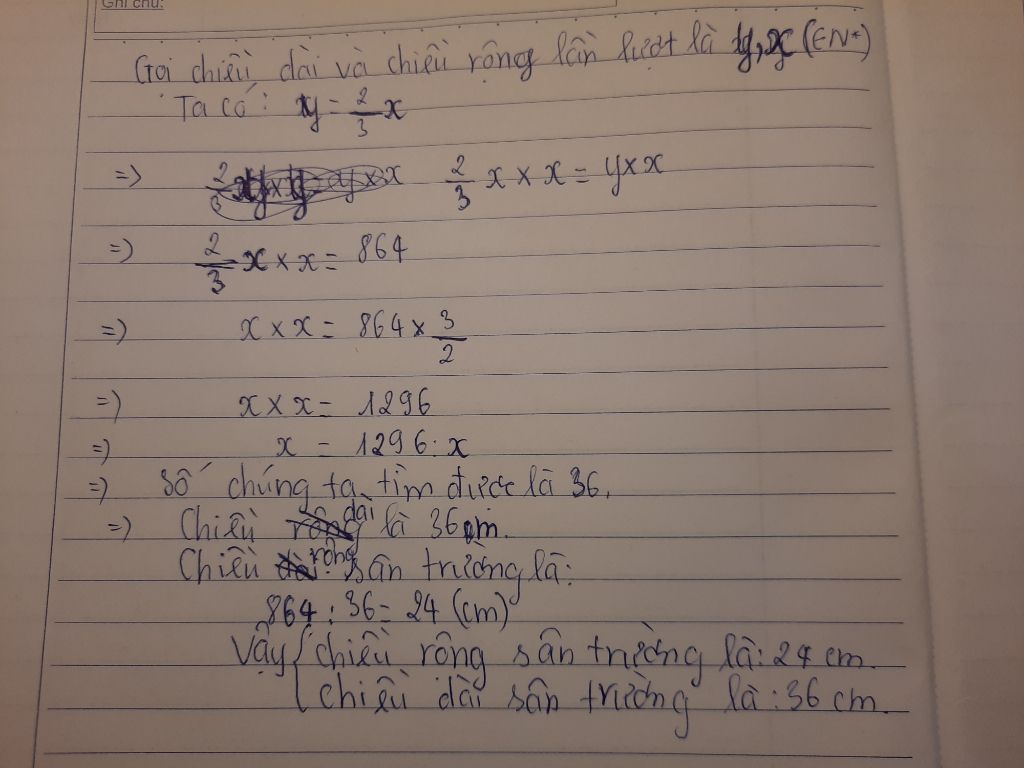 Ghi chú:
Gọi chiều dài và chiều rộng lần lượt là y, x (∈N*)
Ta có: y = 2/3 x
=> 2/3 x × x = y × x
=> 2/3 x × x = 864
=> x × x = 864 × 3/2
=> x × x = 1296
=> x = 1296 : x
=> Số chúng ta tìm được là 36.
=> Chiều dài là 36 m.
Chiều rộng sân trường là:
864 : 36 = 24 (cm)
Vậy { chiều rộng sân trường là: 24 cm.
chiều dài sân trường là: 36 cm.